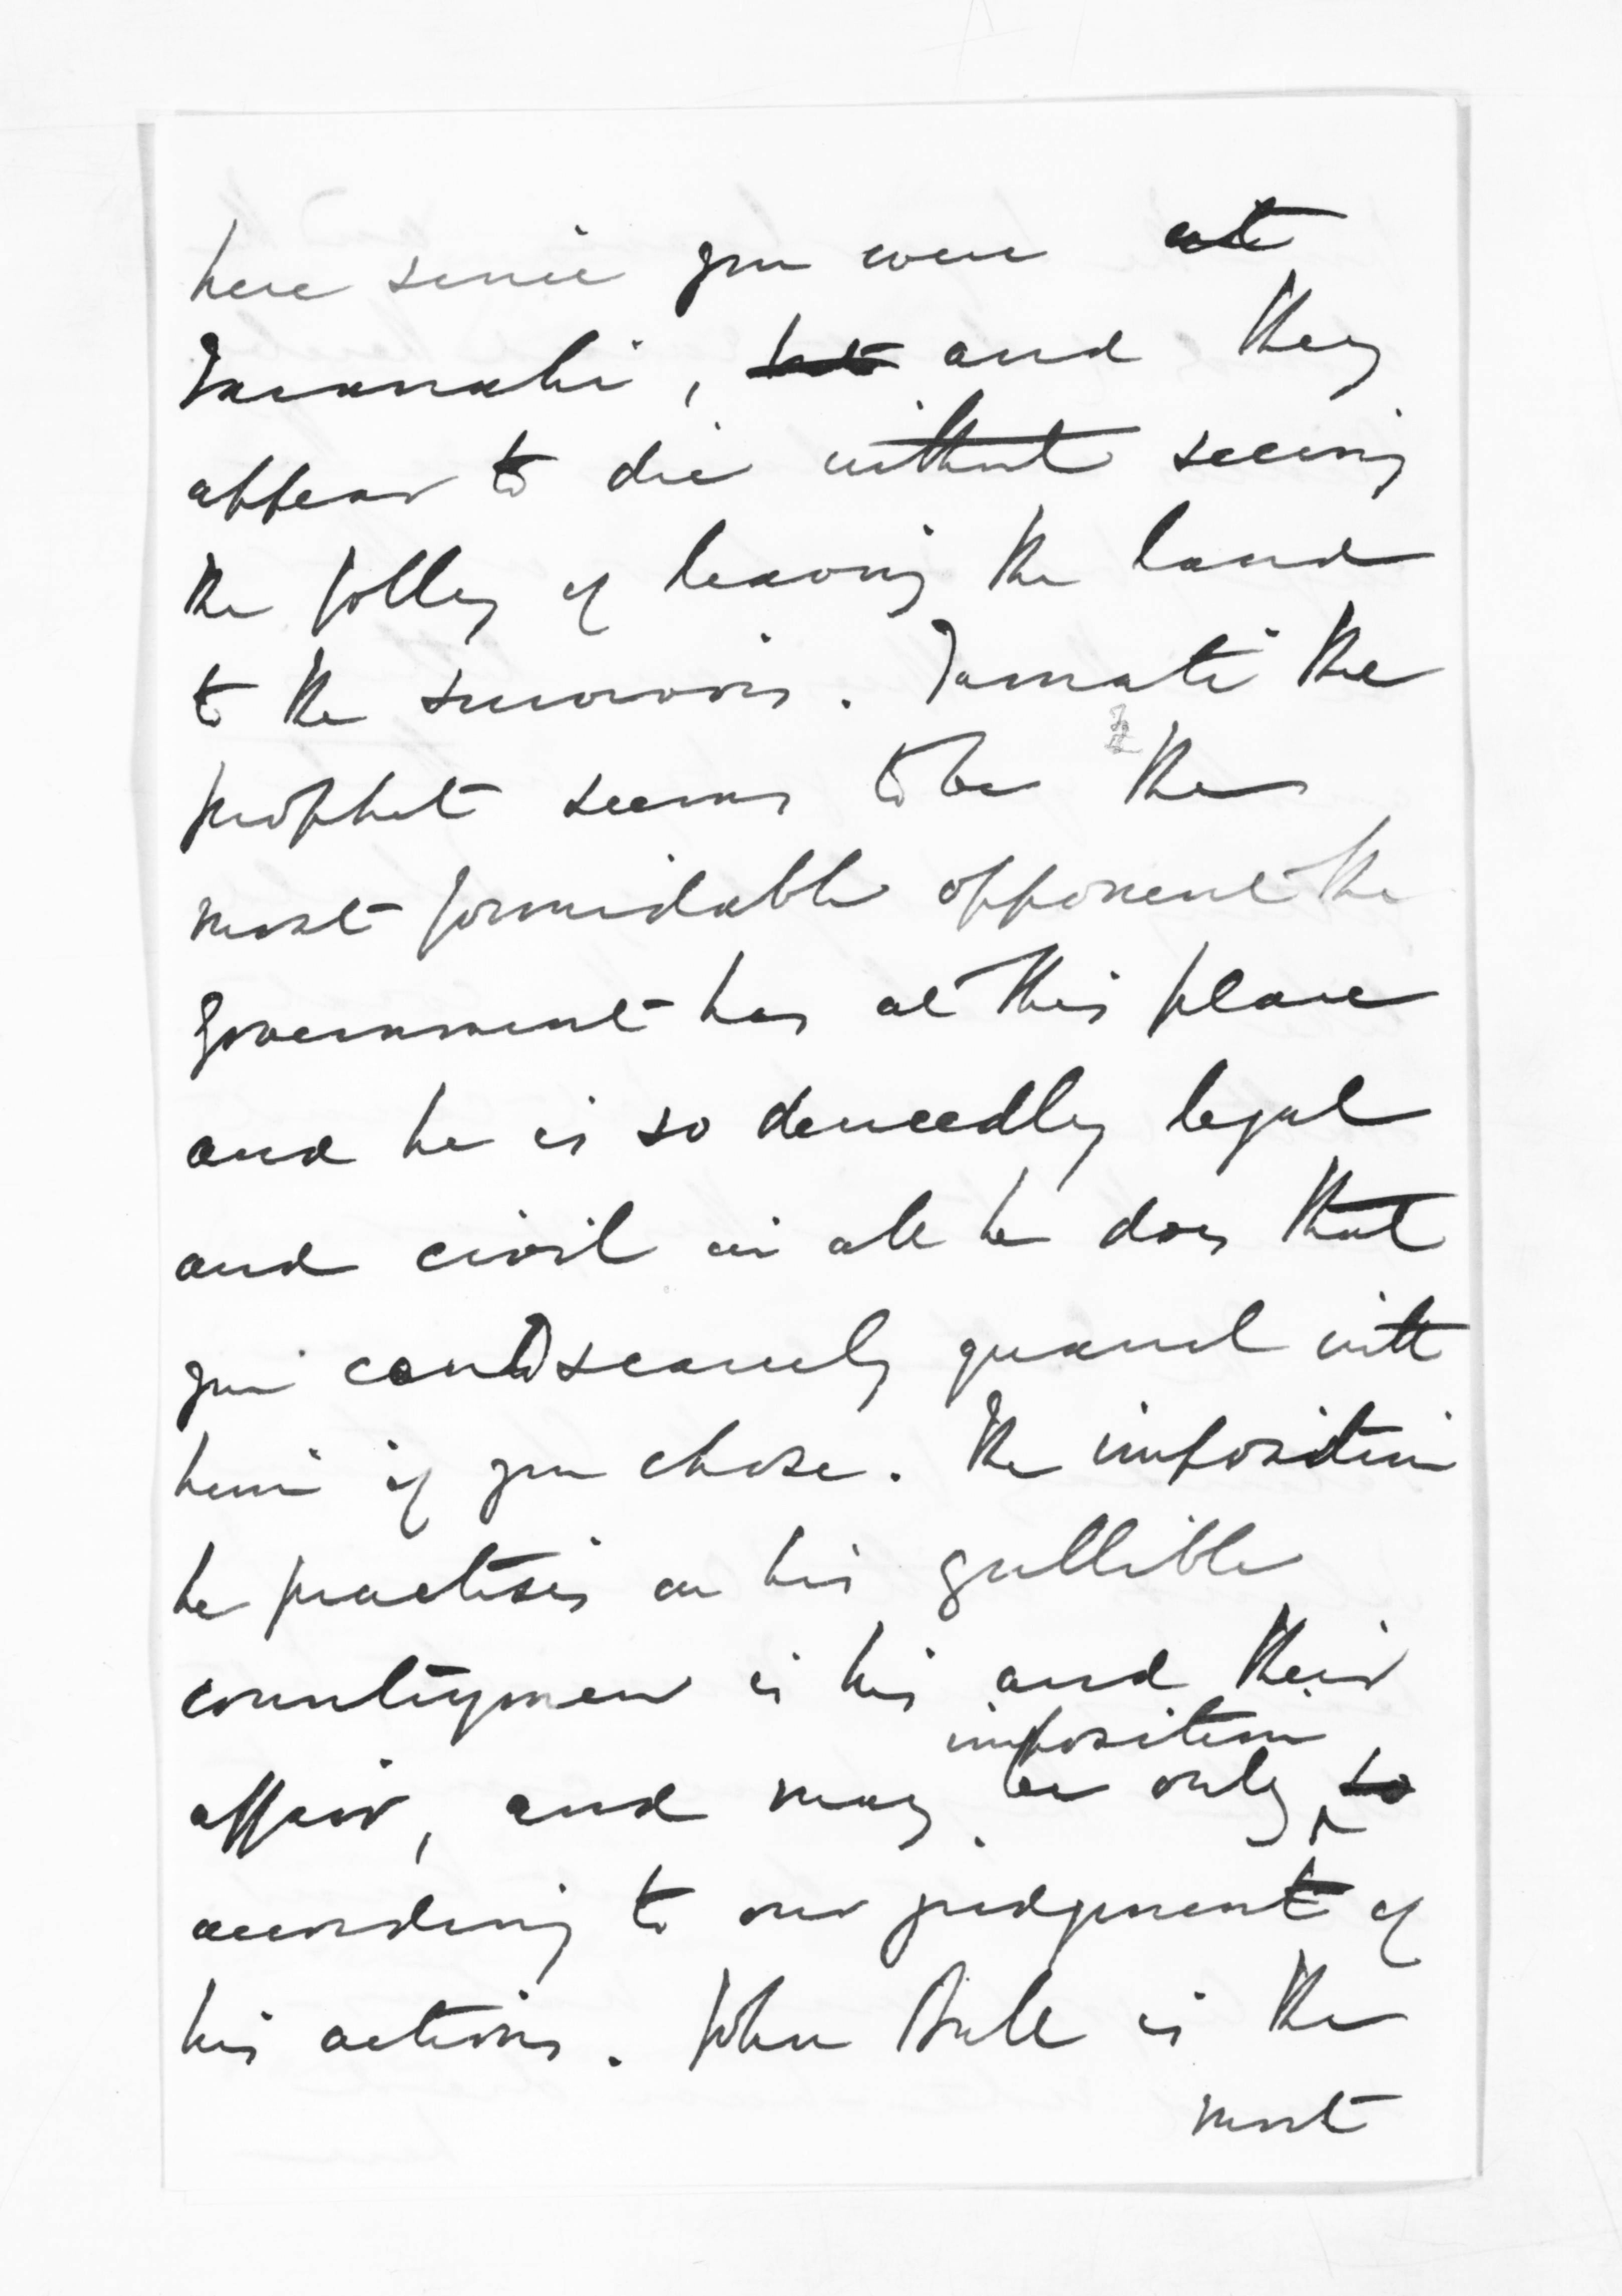 here since you were at
Taranaki, but and they
appear to die without seeing
the folly of leaving the land
to the survivors. Tamati the
prophet seems to be the
most formidable opponent the
Government has at this place
and he is so deucedly legal
and civil in all he does that
you could scarcely quarrel with
him if you chose. The imposition
he practises on his gullible
countrymen is his and their
imposition
affair, and may be only so
according to our judgment of
his actions. John Bull is the
most